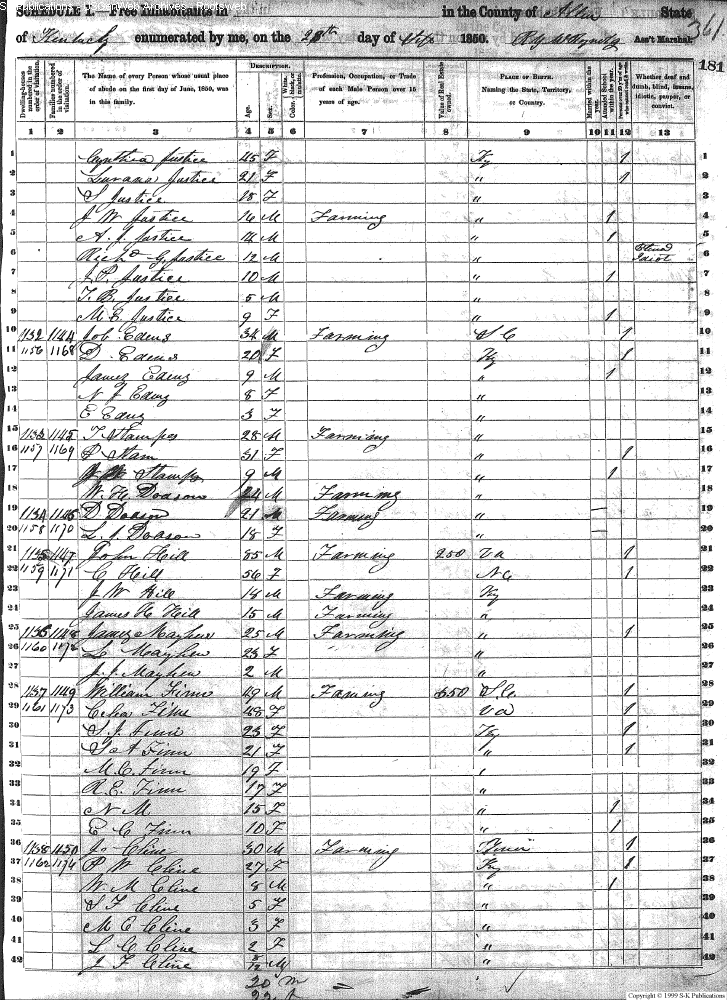 SCHEDULE I.—Free Inhabitants in in the County of Allen State
of Kentucky enumerated by me, on the 28th day of Sept 1850. Ass't Marshal. 361
181
Dwelling-houses numbered in the order of visitation.
Families numbered in the order of visitation.
The Name of every Person whose usual place of abode on the first day of June, 1850, was in this family.
Description.
Age.
Sex.
Color, White, black, or mulatto.
Profession, Occupation, or Trade of each Male Person over 15 years of age.
Value of Real Estate owned.
Place of Birth. Naming the State, Territory, or Country.
Married within the year.
Attended School within the year.
Whether deaf and dumb, blind, insane, idiotic, pauper, or convict.
1 2 3 4 5 6 7 8 9 10 11 12 13
1 Cynthia Justice 45 F Ky 1 1
2 Lurana Justice 21 F " 1 2
3 S Justice 18 F " 3
4 J W Justice 16 M Farming " 1 4
5 A. J. Justice 14 M " 1 5
6 Richd G. Justice 12 M " Idiot 6
7 J. P. Justice 10 M " 1 7
8 T. B. Justice 5 M " 8
9 M. E. Justice 9 F " 1 9
10 1132 1144 Job Edens 34 M Farming S C 1 10
11 1156 1168 D. Edens 20 F Ky 1 11
12 James Edens 9 M " 1 12
13 N J Edens 8 F " 13
14 E Edens 3 F " 14
15 1133 1145 T Stamps 28 M Farming " 15
16 1157 1169 P Stam 31 F " 1 16
17 Stamps 9 M " 1 17
18 W. H. Dodson 24 M Farming " 18
19 1134 1146 D Dodson 21 M Farming " 19
20 1158 1170 L. J. Dodson 18 F " 20
21 1135 1147 John Hill 85 M Farming 250 Va 1 21
22 1159 1171 C Hill 56 F NC 1 22
23 J W Hill 18 M Farming Ky 23
24 James H Hill 15 M Farming " 24
25 1136 1148 James Mayhew 25 M Farming " 1 25
26 1160 1172 L. Mayhew 23 F " 26
27 J. J. Mayhew 2 M " 27
28 1137 1149 William Finn 49 M Farming 650 S. C. 1 28
29 1161 1173 Celia Finn 48 F Va 1 29
30 S. J. Finn 23 F Ky 1 30
31 S A Finn 21 F " 1 31
32 M. C. Finn 19 F " 32
33 R. E. Finn 17 F " 33
34 N M 15 F " 1 34
35 E C Finn 10 F " 1 35
36 1138 1150 Jo Cline 30 M Farming Tenn 1 36
37 1162 1174 P W Cline 27 F Ky 1 37
38 W M Cline 8 M " 1 38
39 S F Cline 5 F " 39
40 M E Cline 3 F " 40
41 L C Cline 2 F " 41
42 J F Cline M " 42
20 m
22 f
Copyright © 1999 S-K Publications